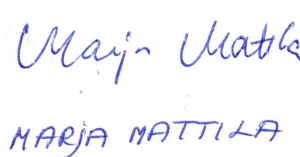 Marja Mattila
MARJA MATTILA